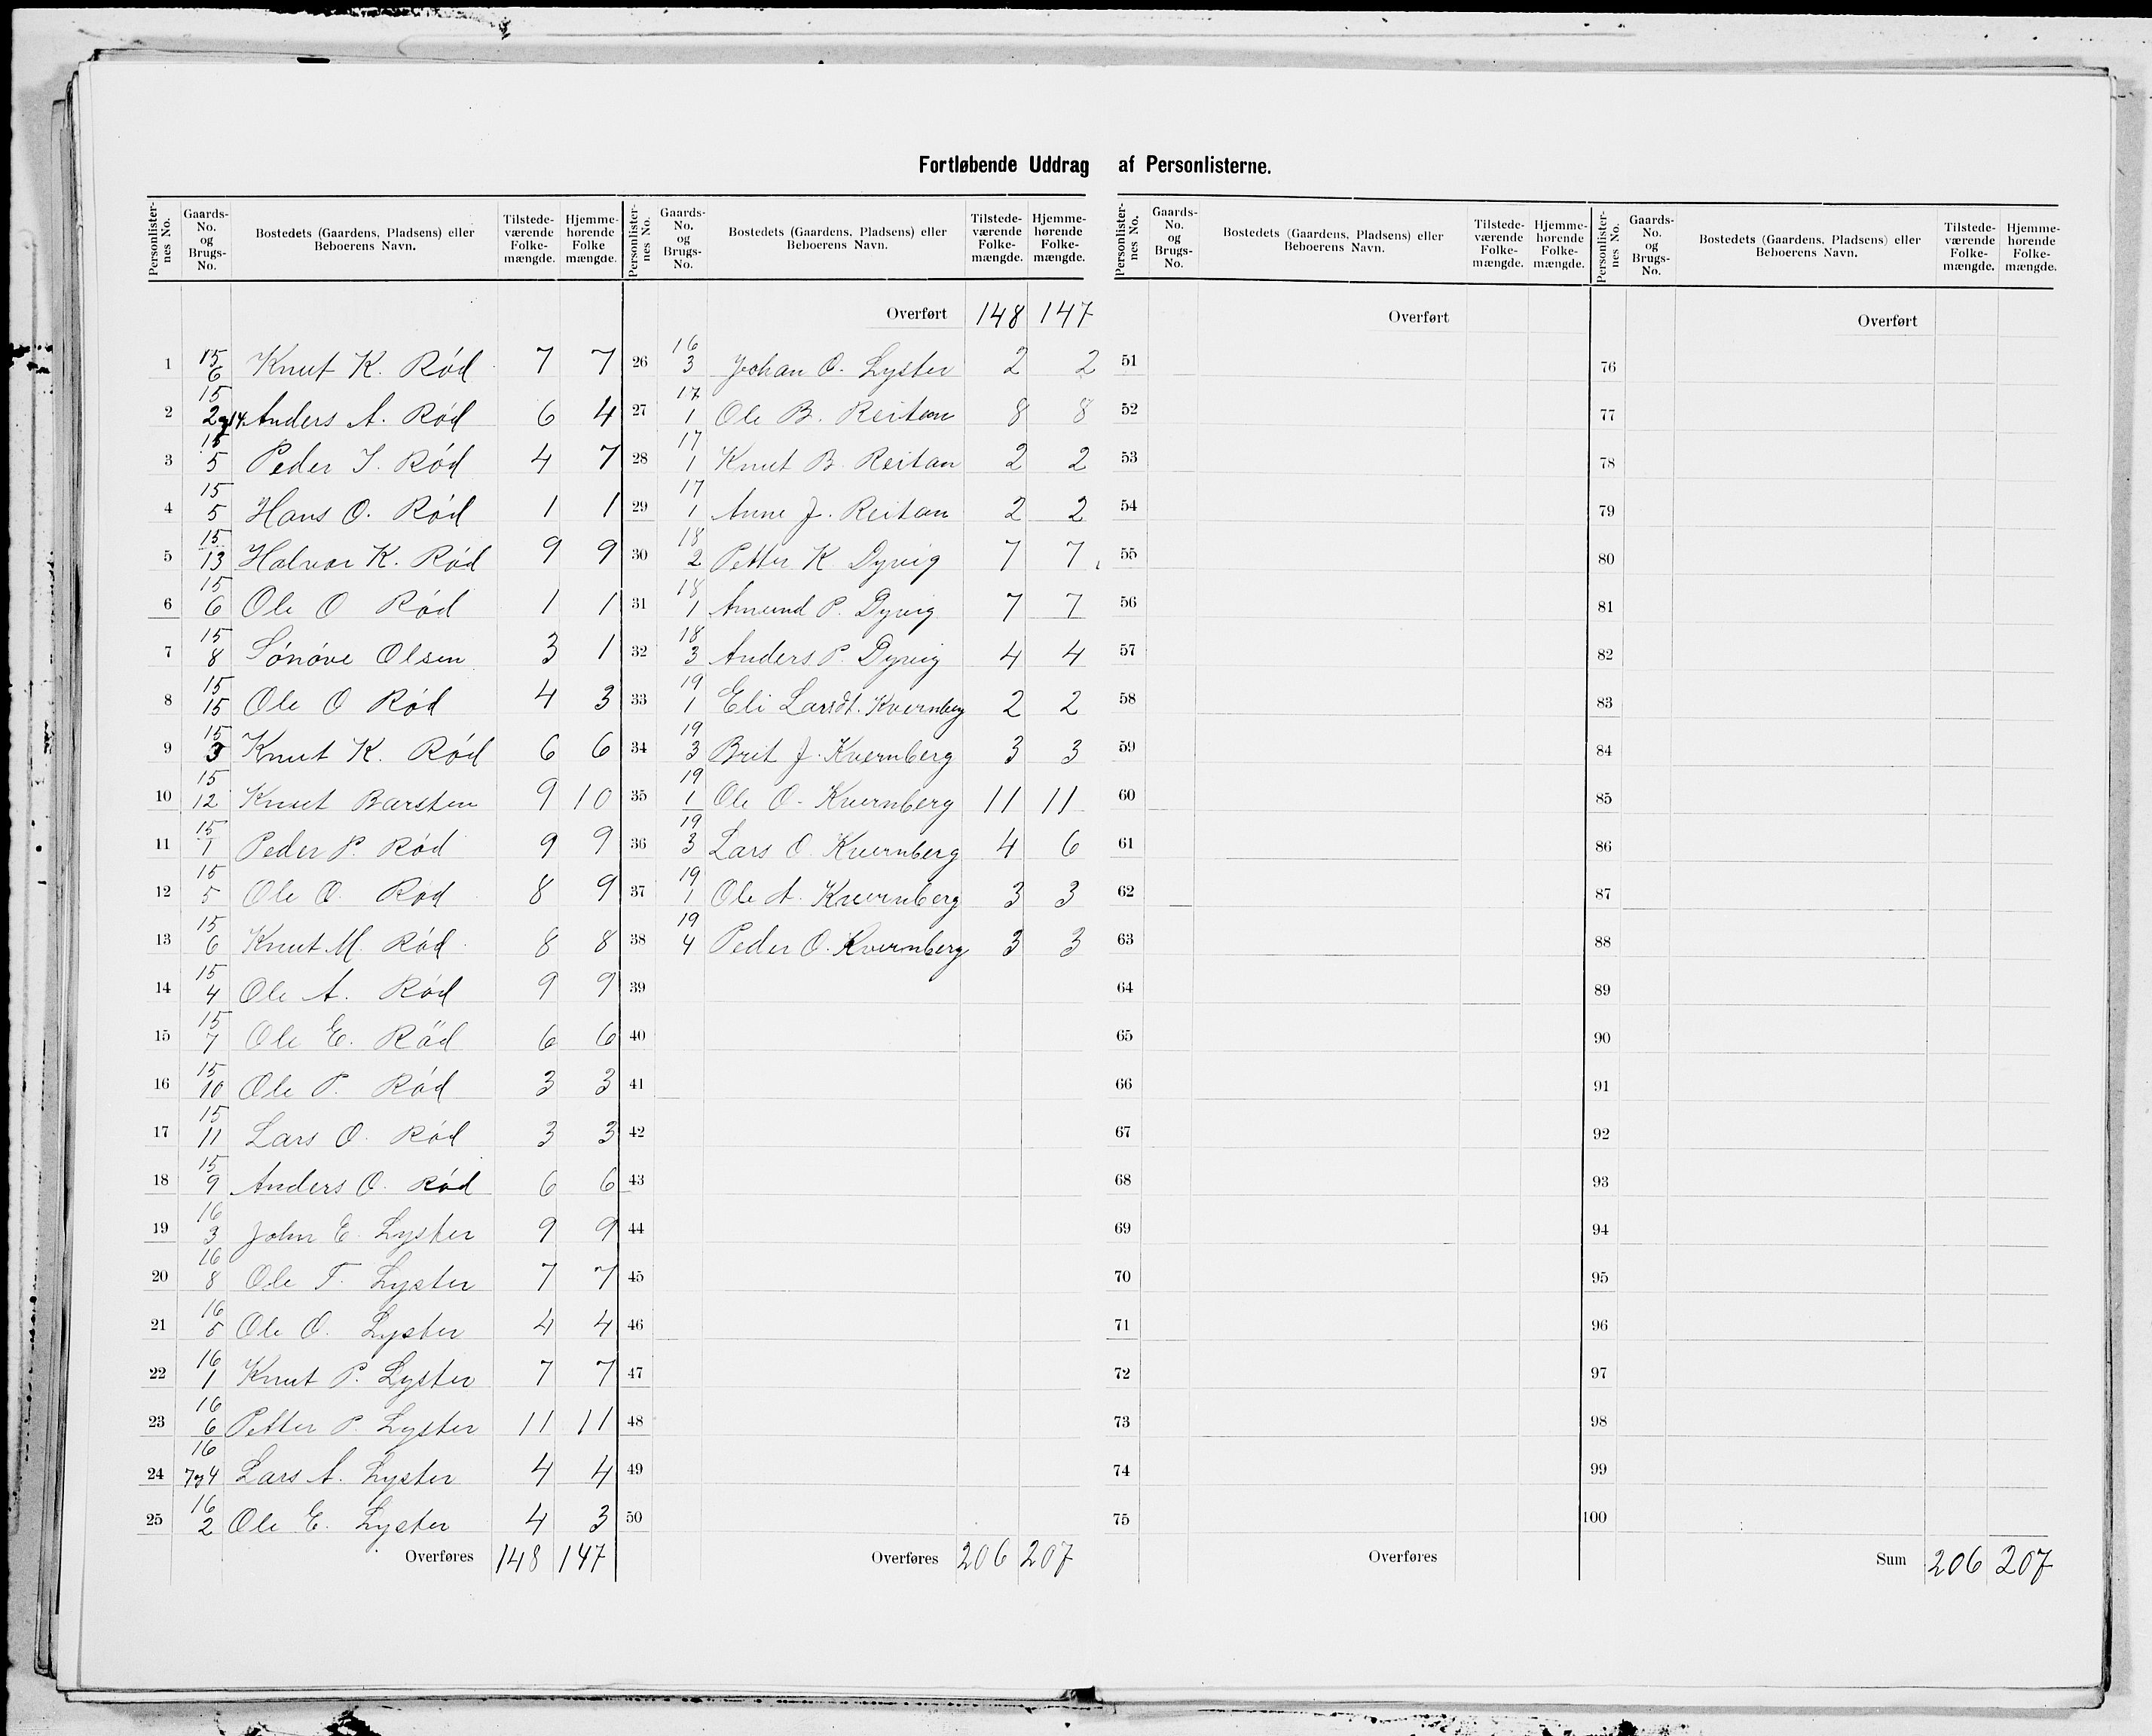 Fortløbende Uddrag af Personlisterne.
Personlisternes No. Gaards-No. og Brugs-No. Bostedets (Gaardens, Pladsens) eller Beboerens Navn. Tilstedeværende Folkemængde. Hjemmehørende Folkemængde.
1 15/6 Knut K. Rød 7 7
2 15/2 og 14 Anders A. Rød 6 4
3 15/5 Peder I. Rød 4 7
4 15/5 Hans O. Rød 1 1
5 15/13 Halvor K. Rød 9 9
6 15/6 Ole O Rød 1 1
7 15/8 Sønøve Olsen 3 1
8 15/15 Ole O Rød 4 3
9 15/3 Knut K. Rød 6 6
10 15/12 Knut Barsten 9 10
11 15/1 Peder P. Rød 9 9
12 15/5 Ole O. Rød 8 9
13 15/6 Knut M. Rød 8 8
14 15/4 Ole A. Rød 9 9
15 15/7 Ole E. Rød 6 6
16 15/10 Ole P. Rød 3 3
17 15/11 Lars O. Rød 3 3
18 15/9 Anders O. Rød 6 6
19 16/3 John E. Lyster 9 9
20 16/8 Ole T. Lyster 7 7
21 16/5 Ole O. Lyster 4 4
22 16/1 Knut P. Lyster 7 7
23 16/6 Petter P. Lyster 11 11
24 16/7 og 4 Lars A. Lyster 4 4
25 16/2 Ole E. Lyster 4 3
Overføres 148 147
Personlisternes No. Gaards-No. og Brugs-No. Bostedets (Gaardens, Pladsens) eller Beboerens Navn. Tilstedeværende Folkemængde. Hjemmehørende Folkemængde.
Overført 148 147
26 16/3 Johan O. Lyster 2 2
27 17/1 Ole B. Reitan 8 8
28 17/1 Knut B. Reitan 2 2
29 17/1 Anne J. Reitan 2 2
30 18/2 Petter K Dyrvig 7 7
31 18/1 Amund P. Dyrvig 7 7
32 18/3 Anders P. Dyrvig 4 4
33 19/1 Eli Larsdt. Kvernberg 2 2
34 19/3 Brit J. Kvernberg 3 3
35 19/1 Ole O. Kvernberg 11 11
36 19/3 Lars O. Kvernberg 4 6
37 19/1 Ole A. Kvernberg 3 3
38 19/4 Peder O. Kvernberg 3 3
39
40
41
42
43
44
45
46
47
48
49
50
Overføres 206 207
Personlisternes No. Gaards-No. og Brugs-No. Bostedets (Gaardens, Pladsens) eller Beboerens Navn. Tilstedeværende Folkemængde. Hjemmehørende Folkemængde.
Overført
51
52
53
54
55
56
57
58
59
60
61
62
63
64
65
66
67
68
69
70
71
72
73
74
75
Overføres
Personlisternes No. Gaards-No. og Brugs-No. Bostedets (Gaardens, Pladsens) eller Beboerens Navn. Tilstedeværende Folkemængde. Hjemmehørende Folkemængde.
Overført
76
77
78
79
80
81
82
83
84
85
86
87
88
89
90
91
92
93
94
95
96
97
98
99
100
Sum 206 207